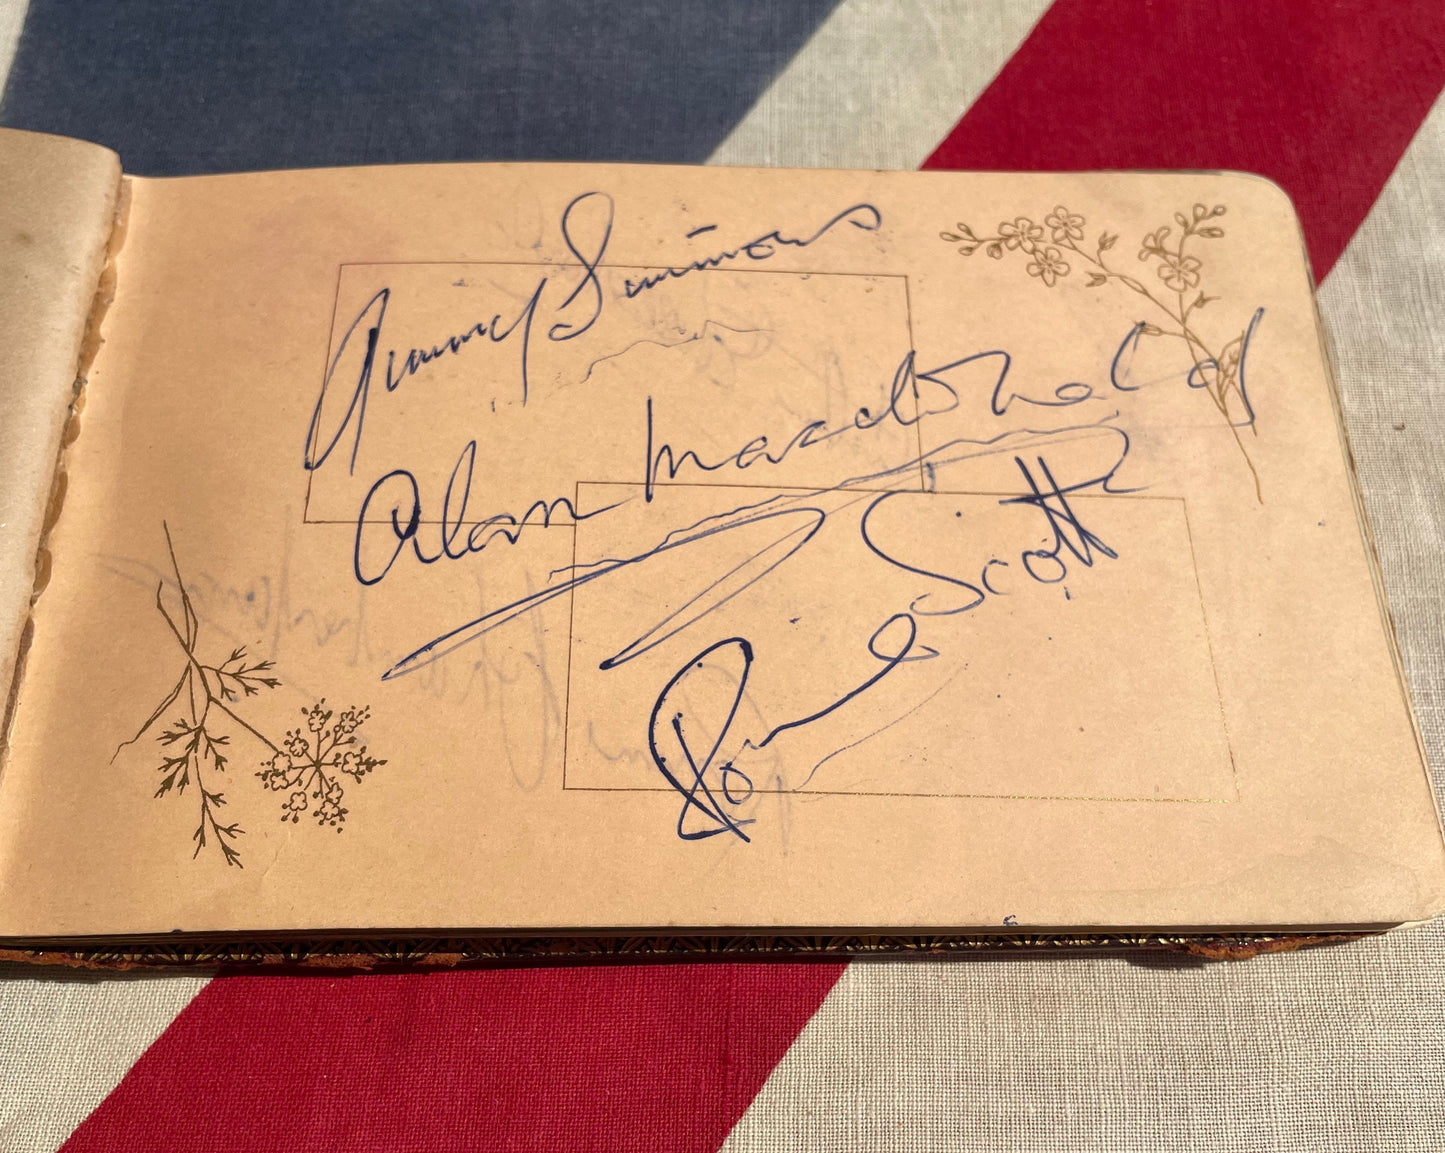 Jimmy Simmons
Alan Macdonald
Ronnie Scott